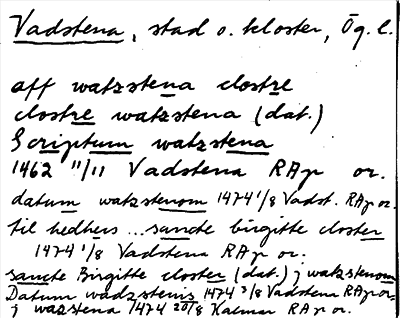 Vadstena, stad o. kloster, Ög. l.
aff watzstena clostre
clostre watzstena (dat.)
Scriptum watzstena
1462 11/11 Vadstena RAp or.
datum watzstenom 1474 1/8 Vadst. RAp or.
til hedhers ... sancte birgitte closter
1474 1/8 Vadstena RAp or.
sancte Birgitte closter (dat.) j watzstenom
Datum wadzstenis 1474 3/8 Vadstena RAp or.
j wazstena 1474 20/8 Kalmar RAp or.